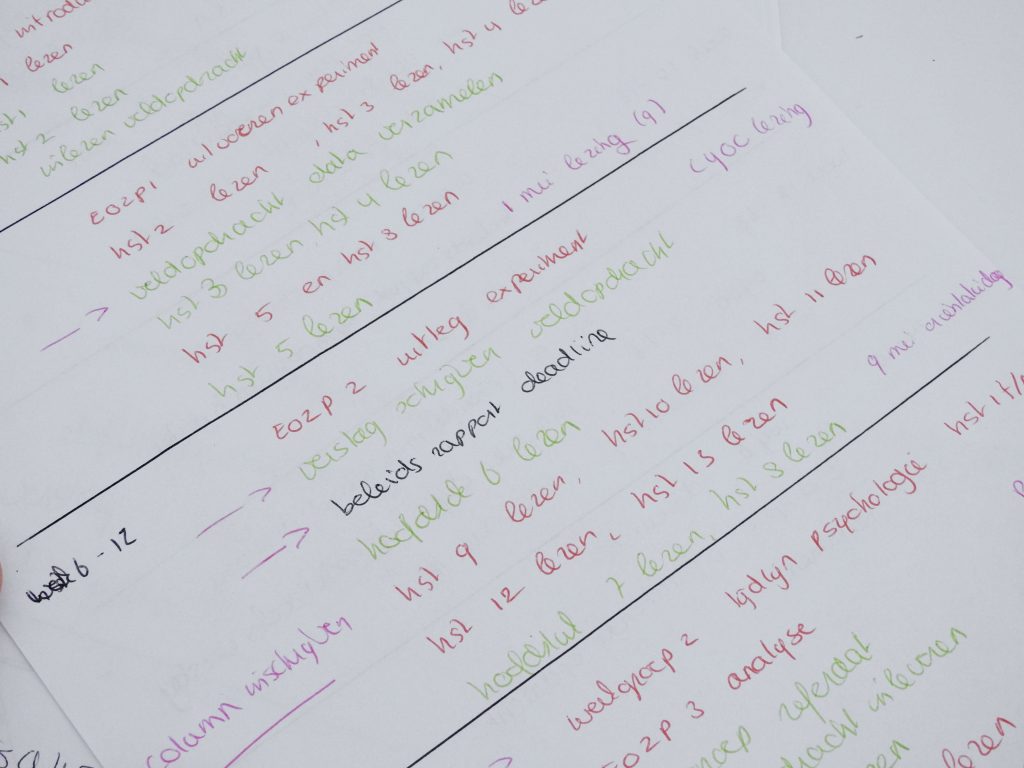 lezen
hst 1 lezen
hst 2 lezen
inlezen veldopdracht
EO2P1 uitvoeren experiment
hst 2 lezen, hst 3 lezen, hst 4
veldopdracht data verzamelen
hst 3 lezen, hst 4 lezen
hst 5 en hst 8 lezen 1 mei lezing (9)
hst 5 lezen CYOC lezing
EO2P 2 uitleg experiment
verslag schrijven veldopdracht
week 6 - 12 beleids rapport deadline
hoofdstuk 6 lezen
hst 9 lezen, hst 10 lezen, hst 11 lezen
hst 12 lezen, hst 13 lezen 9 mei
column inschrijven hoofdstuk 7 lezen, hst 8 lezen
welgroep 2 tijdlijn psychologie hst 1 t/m
EO2P 3 analyse
referaat
inleveren
lezen